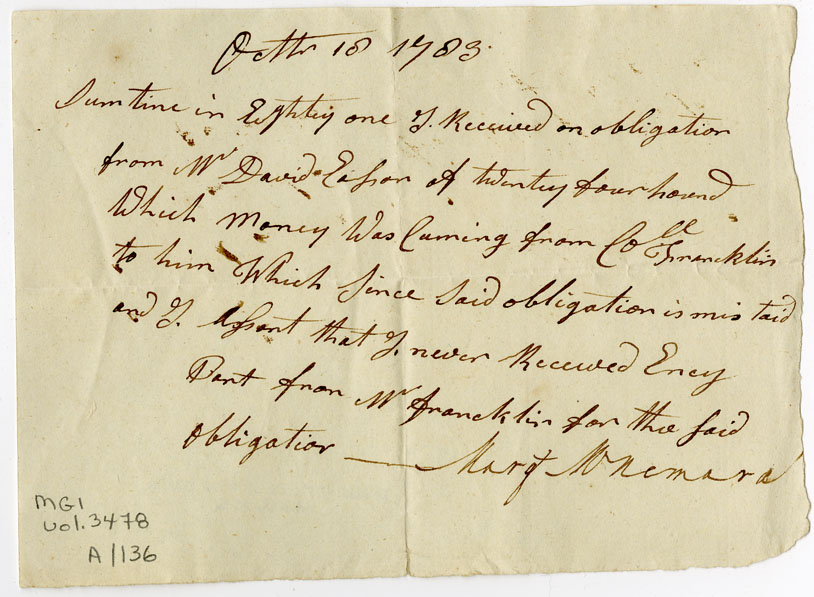 Octbr 18 1783.
Sumtine in Eighty one I Received an obligation
from Mr David Eason of twenty four hound
Which Money Was Cuming from Coll Francklin
to him Which Since Said obligation is mis taid
and I Assent that I never Received Eney
Part from Mr francklin for the Said
Obligation — Margt McNemara
MG1
vol. 3478
A/136